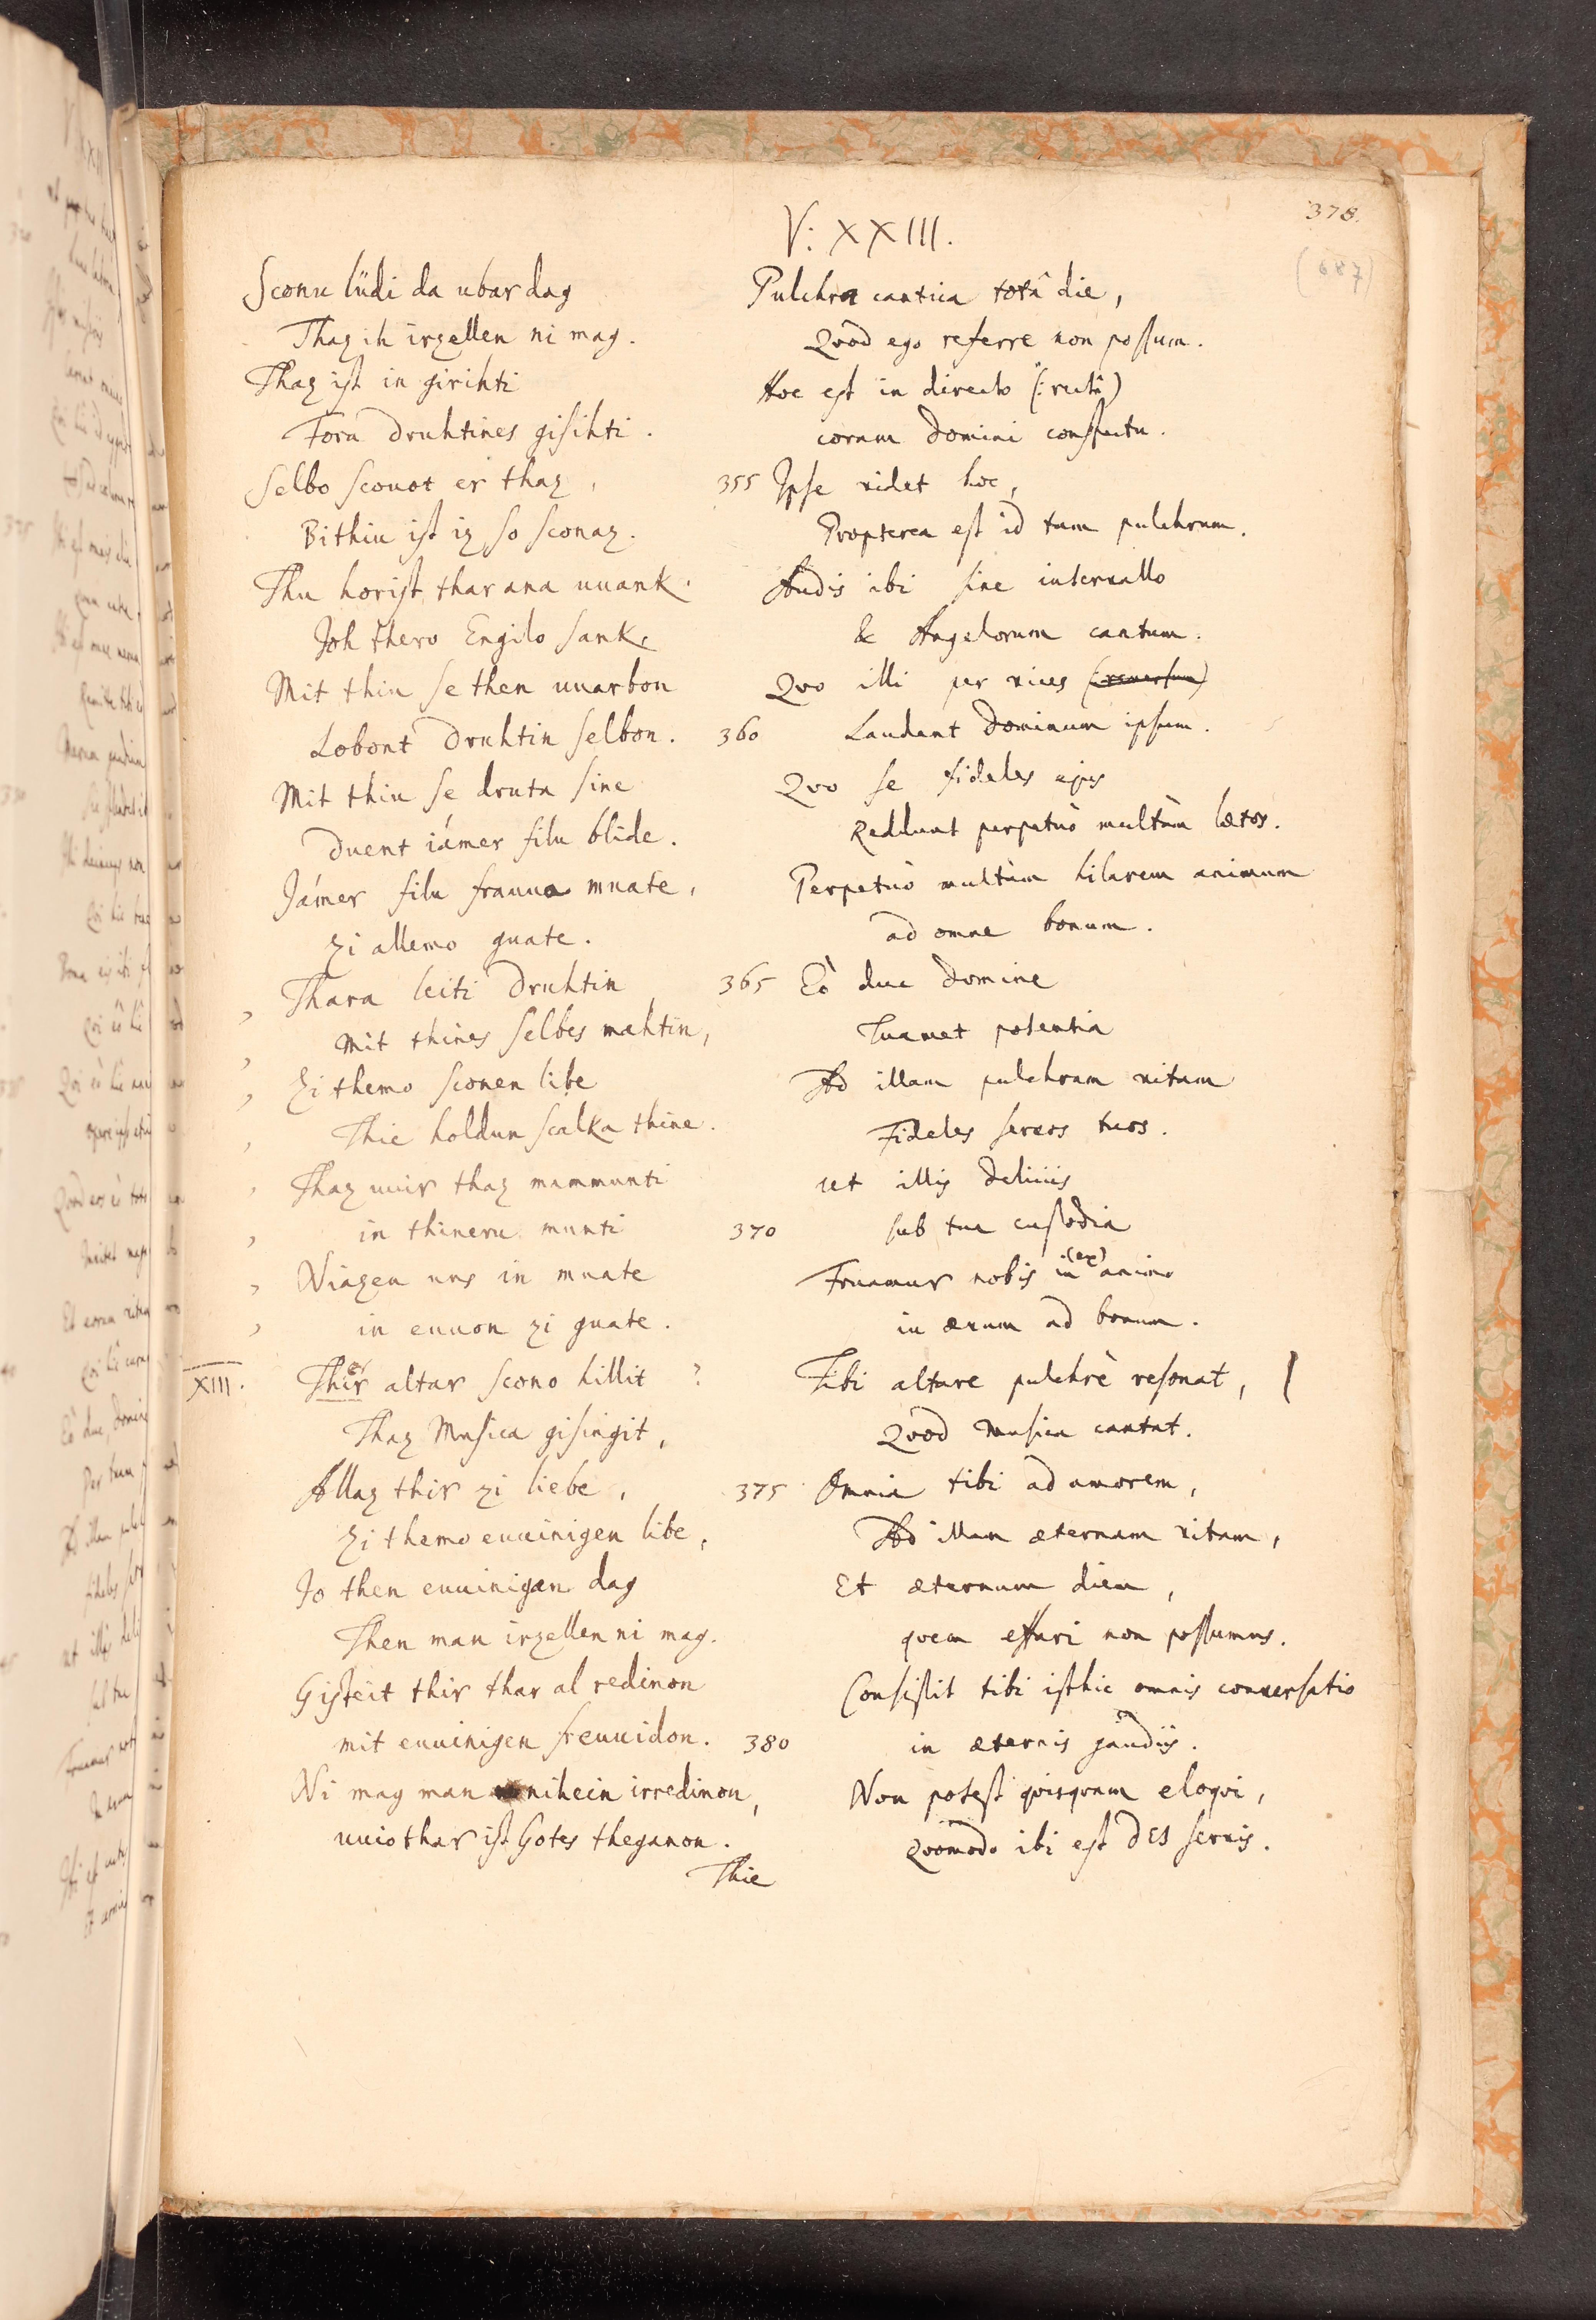 378.
V: XXIII.
(687)
Sconu lüdi da ubar dag
Thaz ih irzellen ni mag.
Thaz ist in girihti
Fora druhtines gisihti.
Selbo scouot er thaz,
Bithiu ist iz so sconaz.
Thu horist thar ana uuank.
Joh thero Engilo sank.
Mit thiu se then uuarbon
Lobont druhtin selbon.
Mit thiu se druta sine
Duent iámer filu blide.
Jámer filu frauua muate,
zi allemo guate.
Thara leiti druhtin
Mit thines selbes mahtin,
Zi themo sconen libe
Thie holdun scalka thine.
Thaz uuir thaz mammunti
in thineru munti
Niazen uns in muate
in euuon zi guate.
XIII.
er
Thir altar scono hillit ?
Thaz Musica gisingit,
Allaz thir zi liebe,
Zi themo euuinigen libe,
Jo then euuinigan dag
Then man irzellen ni mag.
Gisteit thir thar al redinon
mit euuinigen freuuidon.
Ni mag man nihein irredinon,
uuio thar ist Gotes theganon.
Thie
Pulchra cantica totâ die,
Qvòd ego referre non possum.
Hoc est in directo (: rectâ)
coram Domini conspectu.
355 Ipse videt hoc,
Propterea est id tam pulchrum.
Audis ibi sine intervallo
& Angelorum cantum.
Qvo illi per vices (: reversum)
360 Laudant Dominum ipsum.
Qvo se fideles ejus
Reddunt perpetuò multùm lætos.
Perpetuò multùm hilarem animum
ad omne bonum.
365 Eò duc Domine
Tuamet potentia
Ad illam pulchram vitam
Fideles servos tuos.
ut illis deliciis
370 sub tua custodia
Fruamur nobis in (ex) animo
in ævum ad bonum.
Tibi altare pulchrè resonat,
Qvòd Musica cantat.
375 Omnia tibi ad amorem,
Ad illam æternam vitam,
Et æternum diem,
qvem effari non possumus.
Consistit tibi isthic omnis conversatio
380 in æternis gaudiis.
Non potest qvisqvam eloqvi,
Qvomodo ibi est DEI servis.